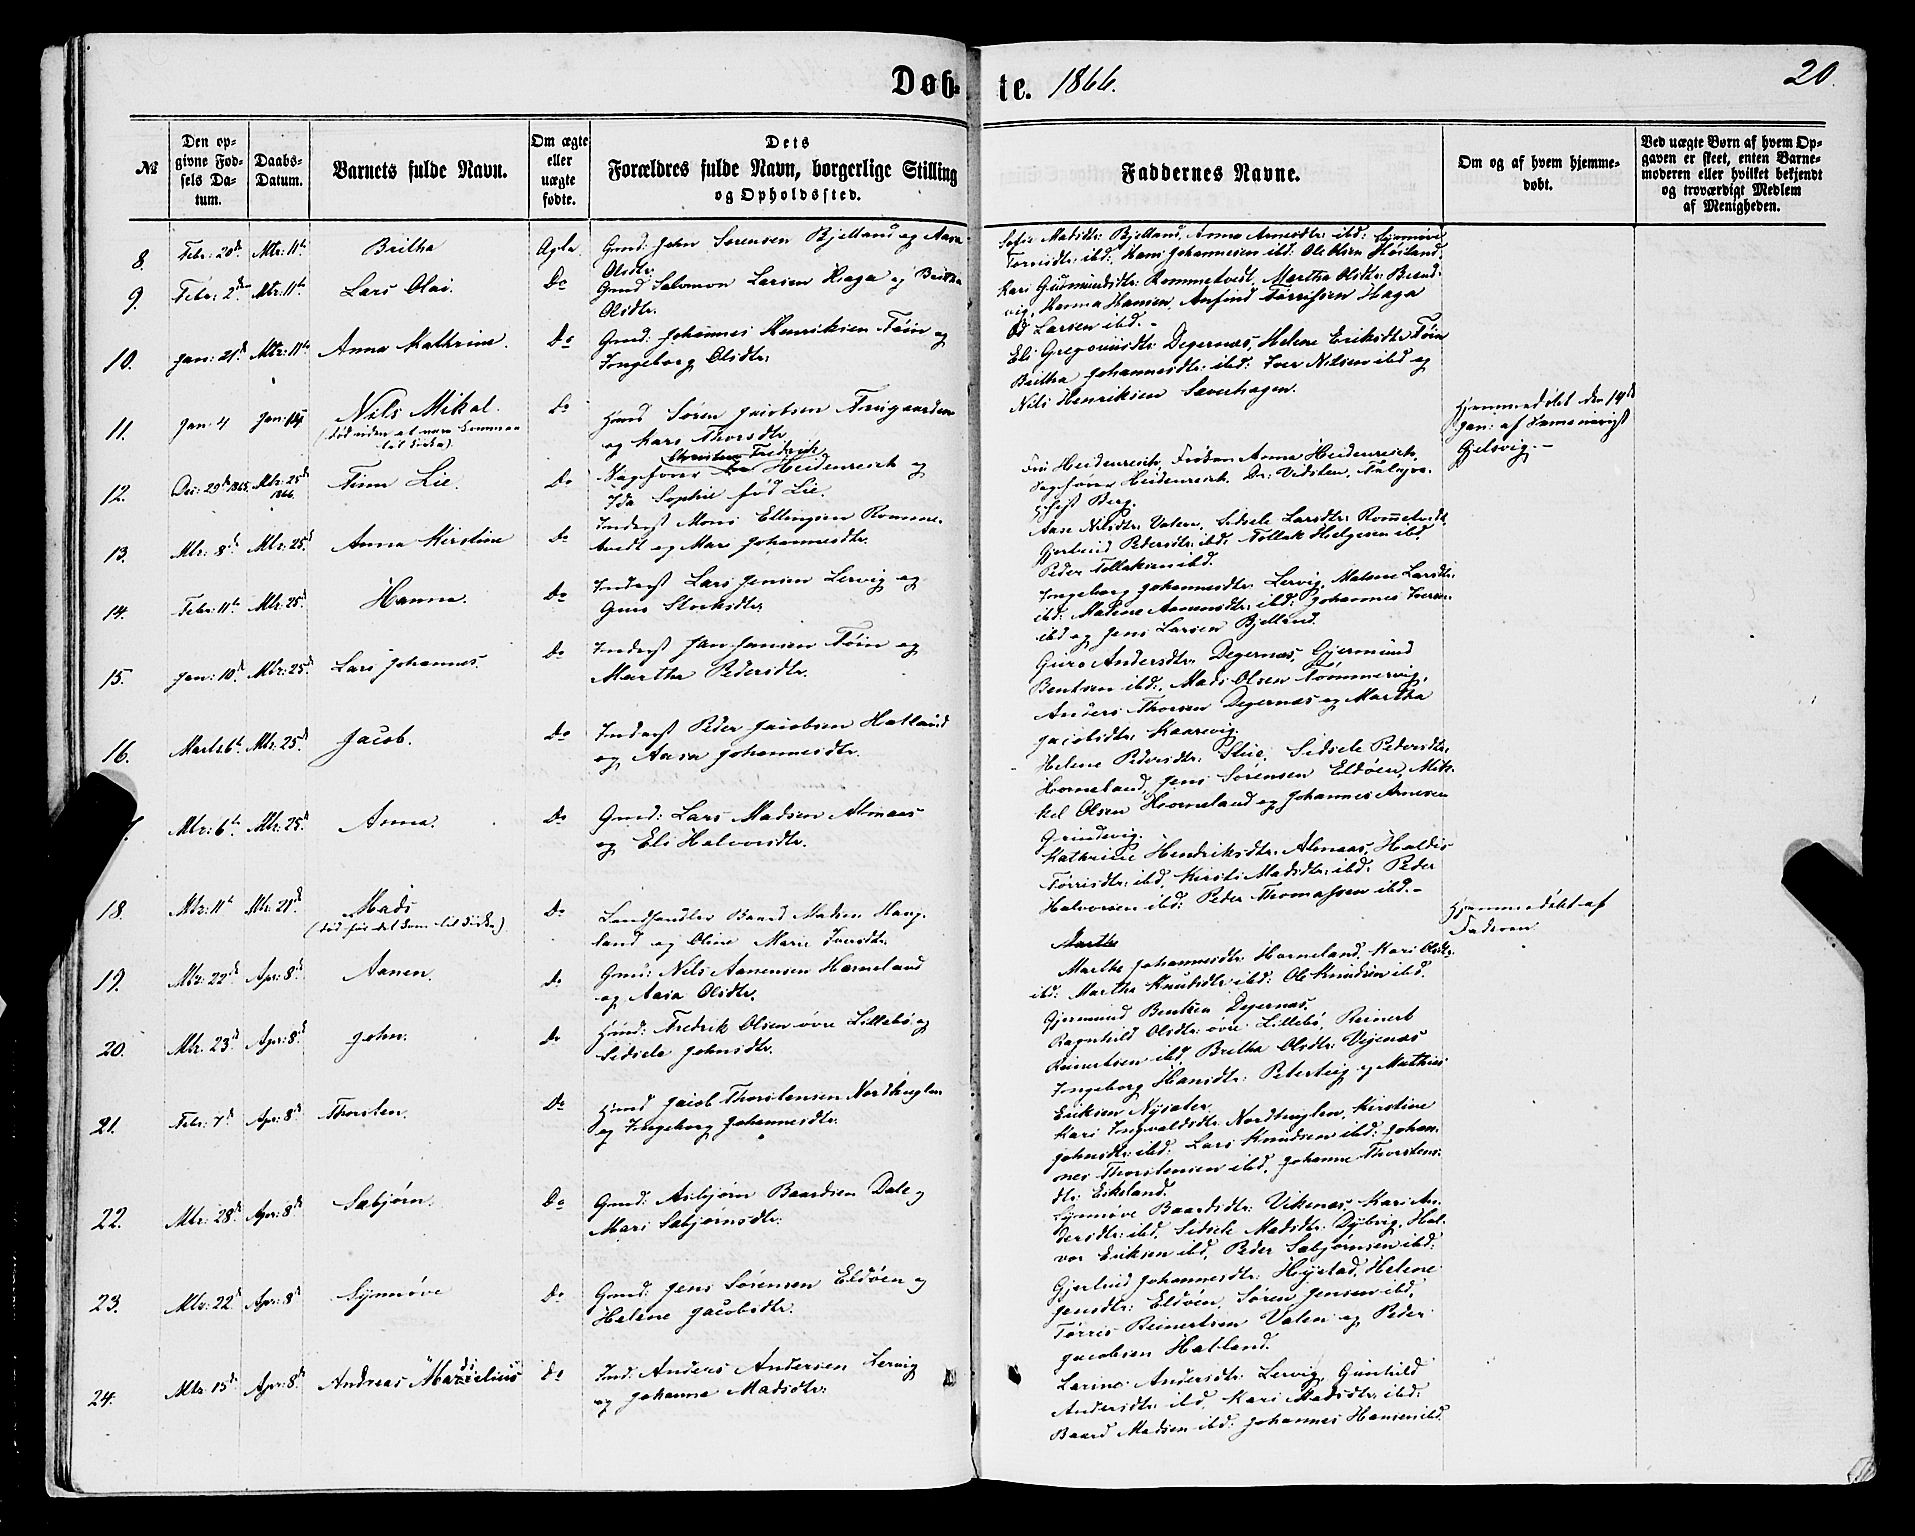 Døb-
te. 1866.
20
№
Den op-
givne Fød-
sels Da-
tum.
Daabs-
Datum.
Barnets fulde Navn.
Om ægte
eller
uægte
fødte.
Dets
Forældres fulde Navn, borgerlige Stilling
og Opholdssted.
Faddernes Navne.
Om og af hvem hjemme-
døbt.
Ved uægte Børn af hvem Op-
gaven er skeet, enten Barne-
moderen eller hvilket bekjendt
og troværdigt Medlem
af Menigheden.
8. Febr: 20de Mts: 11te Britha Ægte Gmd: John Sørensen Bjelland og Aasa
Olsdtr:
Sofie Madsdtr: Bjelland, Anna Arnesdtr: ibd: Synnøve
Torrisdtr: ibd, Hans Johannesen ibd: Ole Olsen Høiland.
9. Febr: 2den Mts: 11te Lars Olai. Do Gmd Salomon Larsen Haga og Britha
Olsdtr.
Kari Gudmundsdtr: Rommetvedt, Martha Olsdtr: Brand-
vig, Hanna Hansen, Anfind Tørrissen Haga
Larsen ibd.
10. Jan: 21de Mts: 11te Anna Kathrine. Do Gmd: Johannes Henriksen Tøin og
Ingeborg Olsdtr:
Eli Gregoriusdtr: Degernæs, Helene Eriksdtr Tøin
Britha Johannesdtr: ibd: Iver Nilsen ibd og
Nils Henriksen Sæverhagen.
11. Jan: 4 Jan: 14 Nils Mikal.
(død uden at være kommen
til Kirke)
Do Hmd Søren Jacobsen
og Kari Thorsdtr
Hjemmedøbt den 14de
Jan: af Seminarist
Gjelsvig.-
12. Dec: 29de 1865. Mts: 25de
1866.
Finn Lie. Do Sagfører Christian Fredrik Heidenreich og
Ida Sophie fød Lie.
Fru Heidenreich, Frøken Anna Heidenreich,
Sagfører Heidenreich, Dr: Vidsteen,
Berg.
13. Mts: 8de Mts: 25de Anna Kirstine Do Inderst Mons Ellingsen Romme-
tvedt og Mari Johannesdtr.
Aase Nilsdtr: Valen, Sidsele Larsdtr: Rommetvedt,
Gjertrud Pedersdtr: ibd, Tollak Helgesen ibd,
Peder Tollaksen ibd.
14. Febr: 11te Mts: 25de Hanna. Do Inderst Lars Jensen Lervig og
Guro
Ingeborg Johannesdtr. Lervig, Malene Larsdtr:
ibd: Malene Aamundsdtr: ibd: Johannes Iversen
ibd og Jens Larsen Bjelland.
15. Jan: 10de Mts: 25de Lars Johannes. Do Inderst Jan Jansen Tøin og
Martha Pedersdtr.
Guro Andersdtr: Degernæs, Gjermund
Bentsen ibd:, Mads Olsen Tømmervig,
Anders Thorsen Degernæs og Martha
Jacobsdtr: Kaarevig.
16. Marts 6te Mts: 25de Jacob. Do Inderst Peder Jacobsen Hatland
og Aasa Johannesdtr.
Helene Pedersdtr: Stue, Sidsele Pedersdtr:
Horneland, Jens Sørensen Eldøen, Mik-
kel Olsen Horneland og Johannes Arnesen
Grindevig.
Mts: 6te Mts: 25de Anna. Do Gmd: Lars Madsen Almaas
og Eli Halvorsdtr.
Kathrine Hendriksdtr: Almaas, Haldis
Torrisdtr: ibd, Kirsti Madsdtr: ibd: Peder
Halvorsen ibd: Peder Thomassen ibd.-
18. Mts: 11te Mts: 21de Mads
(død før det kom til Kirke)
Do Landhandler Baard Madsen Haug-
land og Oline Marie Iversdtr.
Hjemmedøbt af
Faderen
19. Mts: 22de Apr: 8de Aanen. do Gmd: Nils Aanensen Horneland
og Aasa Olsdtr.
Martha
Martha Johannesdtr: Horneland, Kari Olsdtr:
ibd: Martha Knudsdtr: ibd: Ole Knudsen ibd.
Gjermund Bentsen Degernæs.
20. Mts. 23de Apr: 8de John. do Hmd: Fredrik Olsen øvre Lillebø og
Sidsele Johnsdtr.
Ragnhild Olsdtr: øvre Lillebø, Reinert
Reinertsen ibd, Britha Olsdtr: Vejenæs
Ingeborg Hansdtr: Petersteig og Mathias
Eriksen Nysæter.
21. Febr: 7de Apr: 8de Thorsten. Do Hmd Jacob Thorstensen Nordhuglen
og Ingeborg Johannesdtr.
Kari Ingvaldsdtr: Nordhuglen, Kirstine
Johnsdtr: ibd: Lars Knudsen ibd: Johan-
nes Thorstensen ibd, Johanne Thorstens-
dtr: Eikeland.
22. Mts: 28de Apr: 8de Sæbjørn. Do Gmd: Asbjørn Baardsen Dale og
Mari Sæbjørnsdtr.
Synnøve Baardsdtr: Vikenæs, Kari An-
dersdtr: ibd, Sidsele Madsdtr: Dybvig, Hal-
vor Eriksen ibd, Peder Sæbjørnsen ibd:
23. Mts: 22de Apr: 8de Synnøve Do Gmd: Jens Sørensen Eldøen og
Helene Jacobsdtr.
Gjertrud Johannesdtr: Høystad, Helene
Jensdtr: Eldøen, Søren Jensen ibd,
Torris Reinertsen Valen og Peder
Jacobsen Hatland.
24. Mts: 15de Apr: 8de Andreas Do Ind: Anders Andersen Lervig
og Johanna Madsdtr:
Larine Andersdtr: Lervig, Gunhild
Andersdtr: ibd, Kari Madsdtr: ibd:
Baard Madsen ibd: Johannes Hansen ibd.